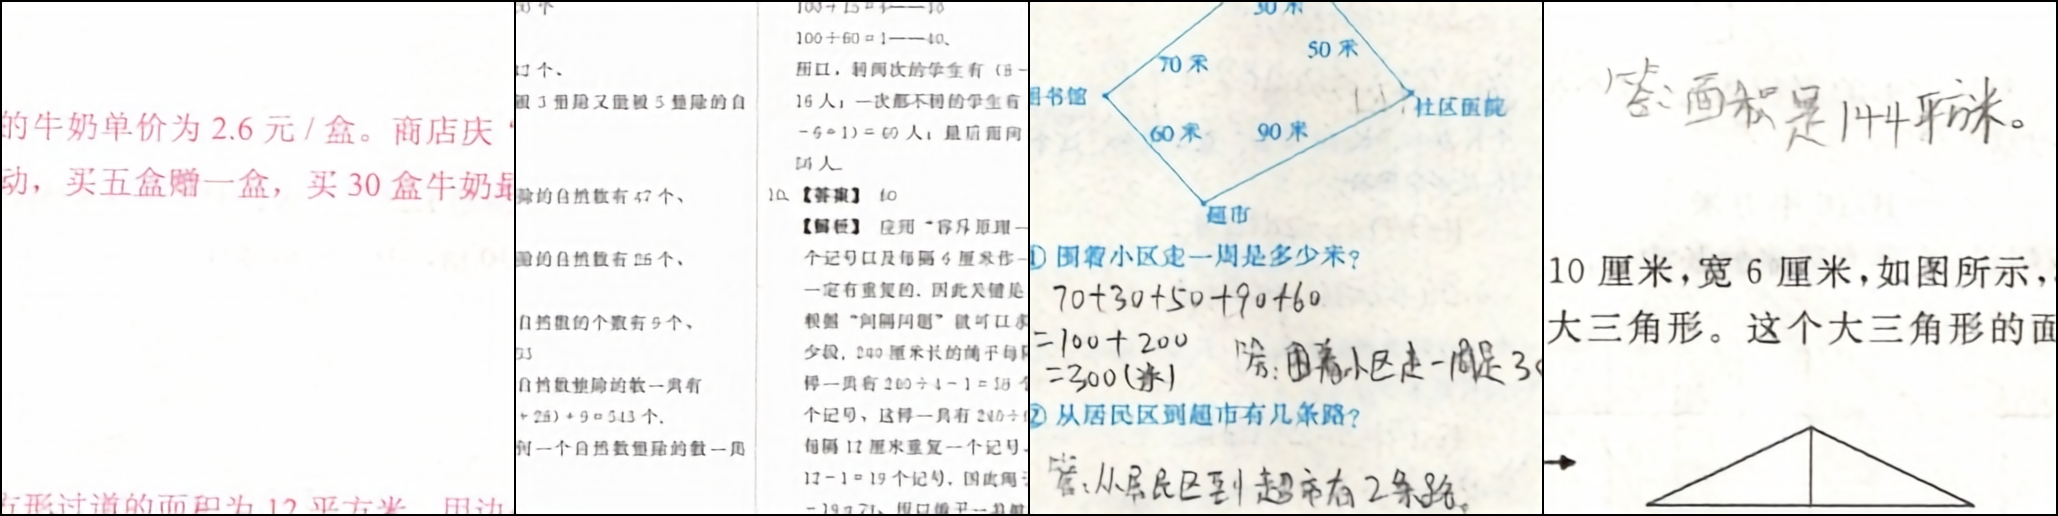 的牛奶单价为 2.6 元 / 盒。商店庆
动，买五盒赠一盒，买 30 盒牛奶最
方形过道的面积为 12 平方米
个、
被 3 整除又能被 5 整除的自
除的自然数有 47 个、
的自然数有 26 个、
自然数的个数有 9 个、
自然数整除的数一共有
何一个自然数整除的数一共
100÷60=1——40、
16 人；一次都不同的学生有
人；最后面向
10、【答案】 60
【解析】 应用“容斥原理
个记号以及每隔 6 厘米作一
一定有重复的．因此关键是
根据“间隔问题”就可以求
少段．240 厘米长的绳子每隔
个记号、这样一共有 240÷
每隔 12 厘米重复一个记号
12－1＝19 个记号．因此绳子
30 米
70 米
50 米
图书馆
社区医院
60 米
90 米
超市
① 围着小区走一周是多少米？
70+30+50+90+60
=100+200
=300(米)
答:围着小区走一周是30
② 从居民区到超市有几条路？
答:从居民区到超市有2条路。
答:面积是144平方米。
10 厘米，宽 6 厘米，如图所示，
大三角形。这个大三角形的面